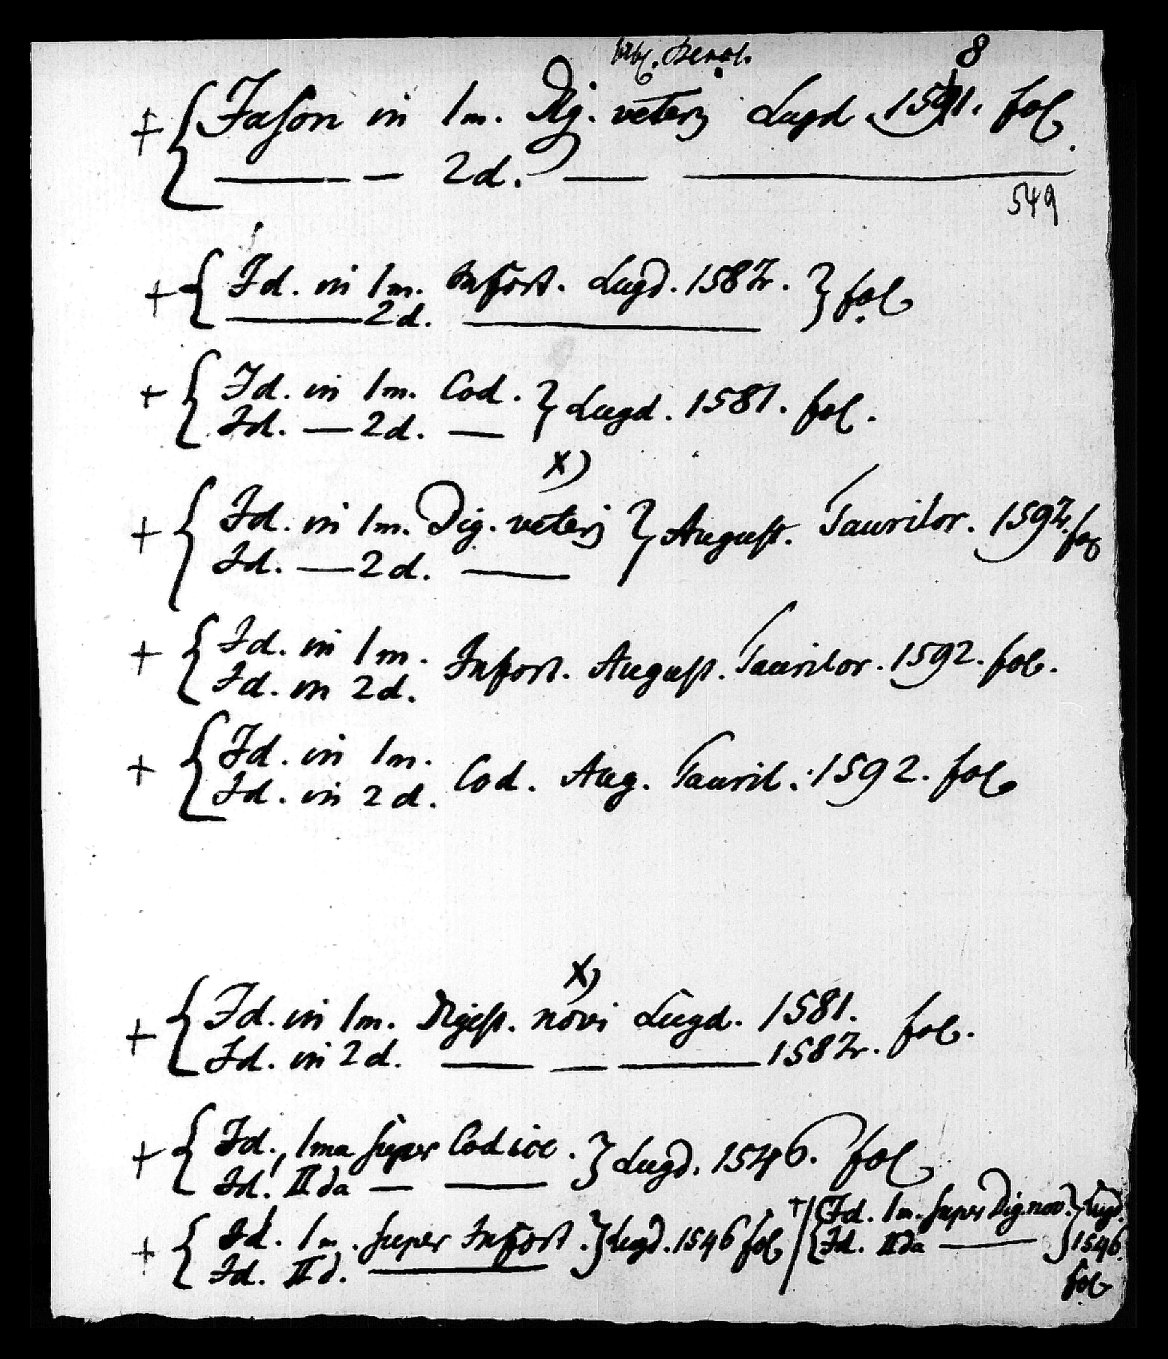 8
+ { Jason in 1m. Dig. veteris Lugd. 1591. fol.
——— — 2d. —— ————
549
+ { Id. in 1m. Infort. Lugd. 1582. } fol.
———2d. ————
+ { Id. in 1m. Cod. } Lugd. 1581. fol.
Id. —2d. —
x)
+ { Id. in 1m. Dig. veteris } August. Taurilor. 1592. fol
Id. —2d. ——
+ { Id. in 1m. Infort. August. Taurilor. 1592. fol.
Id. in 2d.
+ { Id. in 1m. Cod. Aug. Tauril. 1592. fol
Id. in 2d.
x)
+ { Id. in 1m. Digest. novi Lugd. 1581. fol.
Id. in 2d. —— — ——— 1582.
+ { Id. 1ma super Codice. } Lugd. 1546. fol
Id. IIda — ——
+ { Id. 1m. super Infort. } Lugd. 1546 fol / + { Id. 1m. super Dig nov. } Lugd.
Id. IId. ——— Id. IIda ——— 1546.
fol